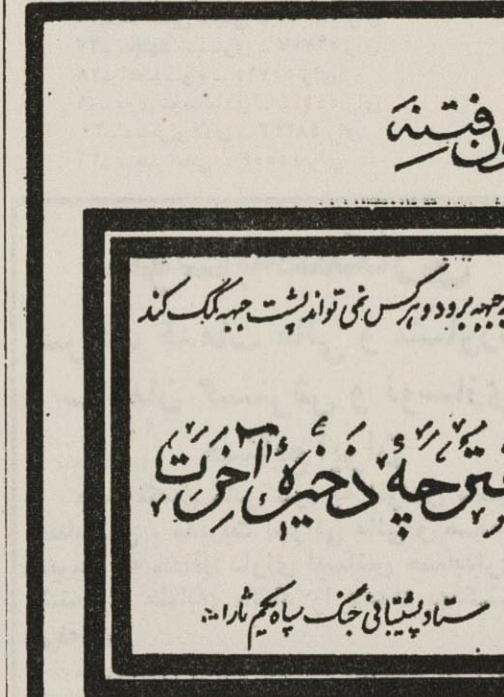 فتنه
جبهه برود و هر کس نمی تواند پشت جبهه کمک کند
ذخیرهٔ آخرت
ستاد پشتیبانی جنگ سپاه یکم ثارا...